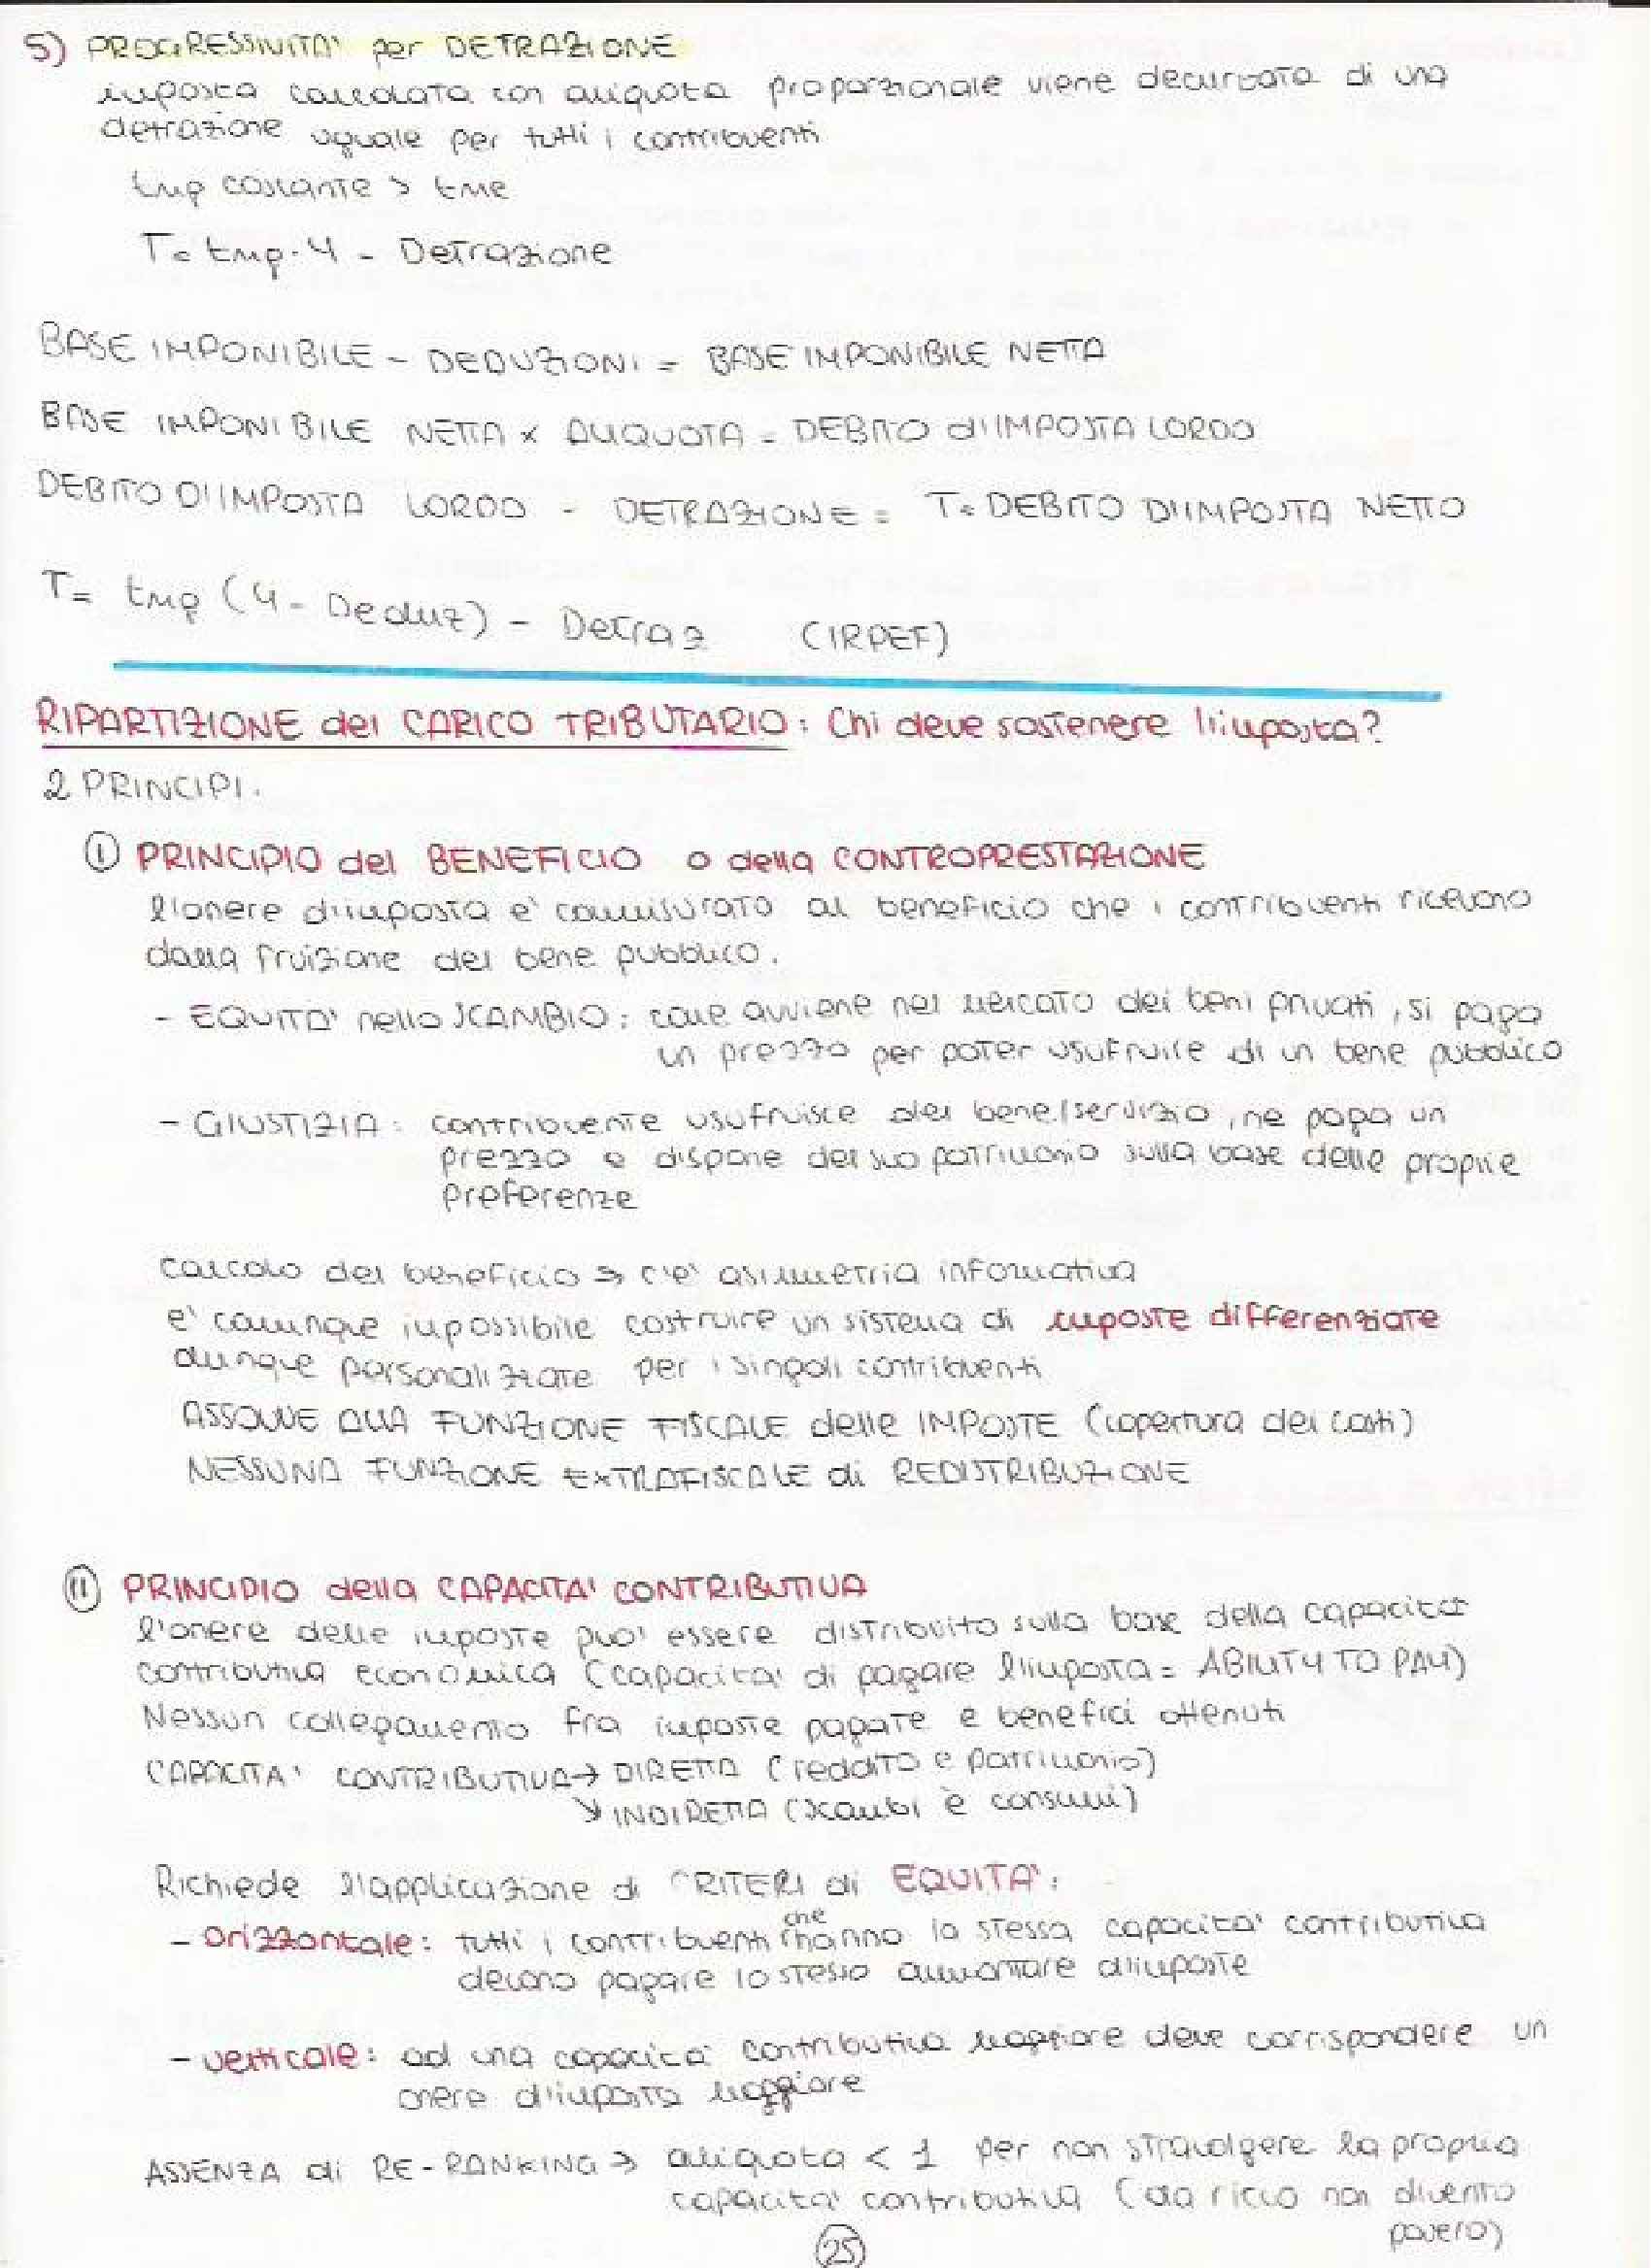 5) PROGRESSIVITA' per DETRAZIONE
imposta calcolata con aliquota proporzionale viene decurtata di una
detrazione uguale per tutti i contribuenti
tmg costante > tme
T = tmg · Y - Detrazione
BASE IMPONIBILE - DEDUZIONI = BASE IMPONIBILE NETTA
BASE IMPONIBILE NETTA x ALIQUOTA = DEBITO d'IMPOSTA LORDO
DEBITO D'IMPOSTA LORDO - DETRAZIONE = T = DEBITO D'IMPOSTA NETTO
T = tmg (Y - Deduz) - Detraz (IRPEF)
RIPARTIZIONE del CARICO TRIBUTARIO: Chi deve sostenere l'imposta?
2 PRINCIPI.
① PRINCIPIO del BENEFICIO o della CONTROPRESTAZIONE
l'onere d'imposta e' commisurato al beneficio che i contribuenti ricevono
dalla fruizione del bene pubblico.
- EQUITA' nello SCAMBIO: come avviene nel mercato dei beni privati, si paga
un prezzo per poter usufruire di un bene pubblico
- GIUSTIZIA: contribuente usufruisce del bene/servizio, ne paga un
prezzo e dispone del suo patrimonio sulla base delle proprie
preferenze
Calcolo del beneficio → c'e' asimmetria informativa
e' comunque impossibile costruire un sistema di imposte differenziate
dunque personalizzate per i singoli contribuenti
ASSOLVE ALLA FUNZIONE FISCALE delle IMPOSTE (copertura dei costi)
NESSUNA FUNZIONE EXTRAFISCALE di REDISTRIBUZIONE
(II) PRINCIPIO della CAPACITA' CONTRIBUTIVA
l'onere delle imposte puo' essere distribuito sulla base della capacita'
contributiva economica (capacita' di pagare l'imposta = ABILITY TO PAY)
Nessun collegamento fra imposte pagate e benefici ottenuti
CAPACITA' CONTRIBUTIVA → DIRETTA (reddito e patrimonio)
↘ INDIRETTA (scambi e consumi)
Richiede l'applicazione di CRITERI di EQUITA':
- Orizzontale: tutti i contribuenti che hanno la stessa capacita' contributiva
devono pagare lo stesso ammontare d'imposte
- verticale: ad una capacita' contributiva maggiore deve corrispondere un
onere d'imposta maggiore
ASSENZA di RE-RANKING → aliquota < 1 per non stravolgere la propria
capacita' contributiva (da ricco non divento
povero)
25